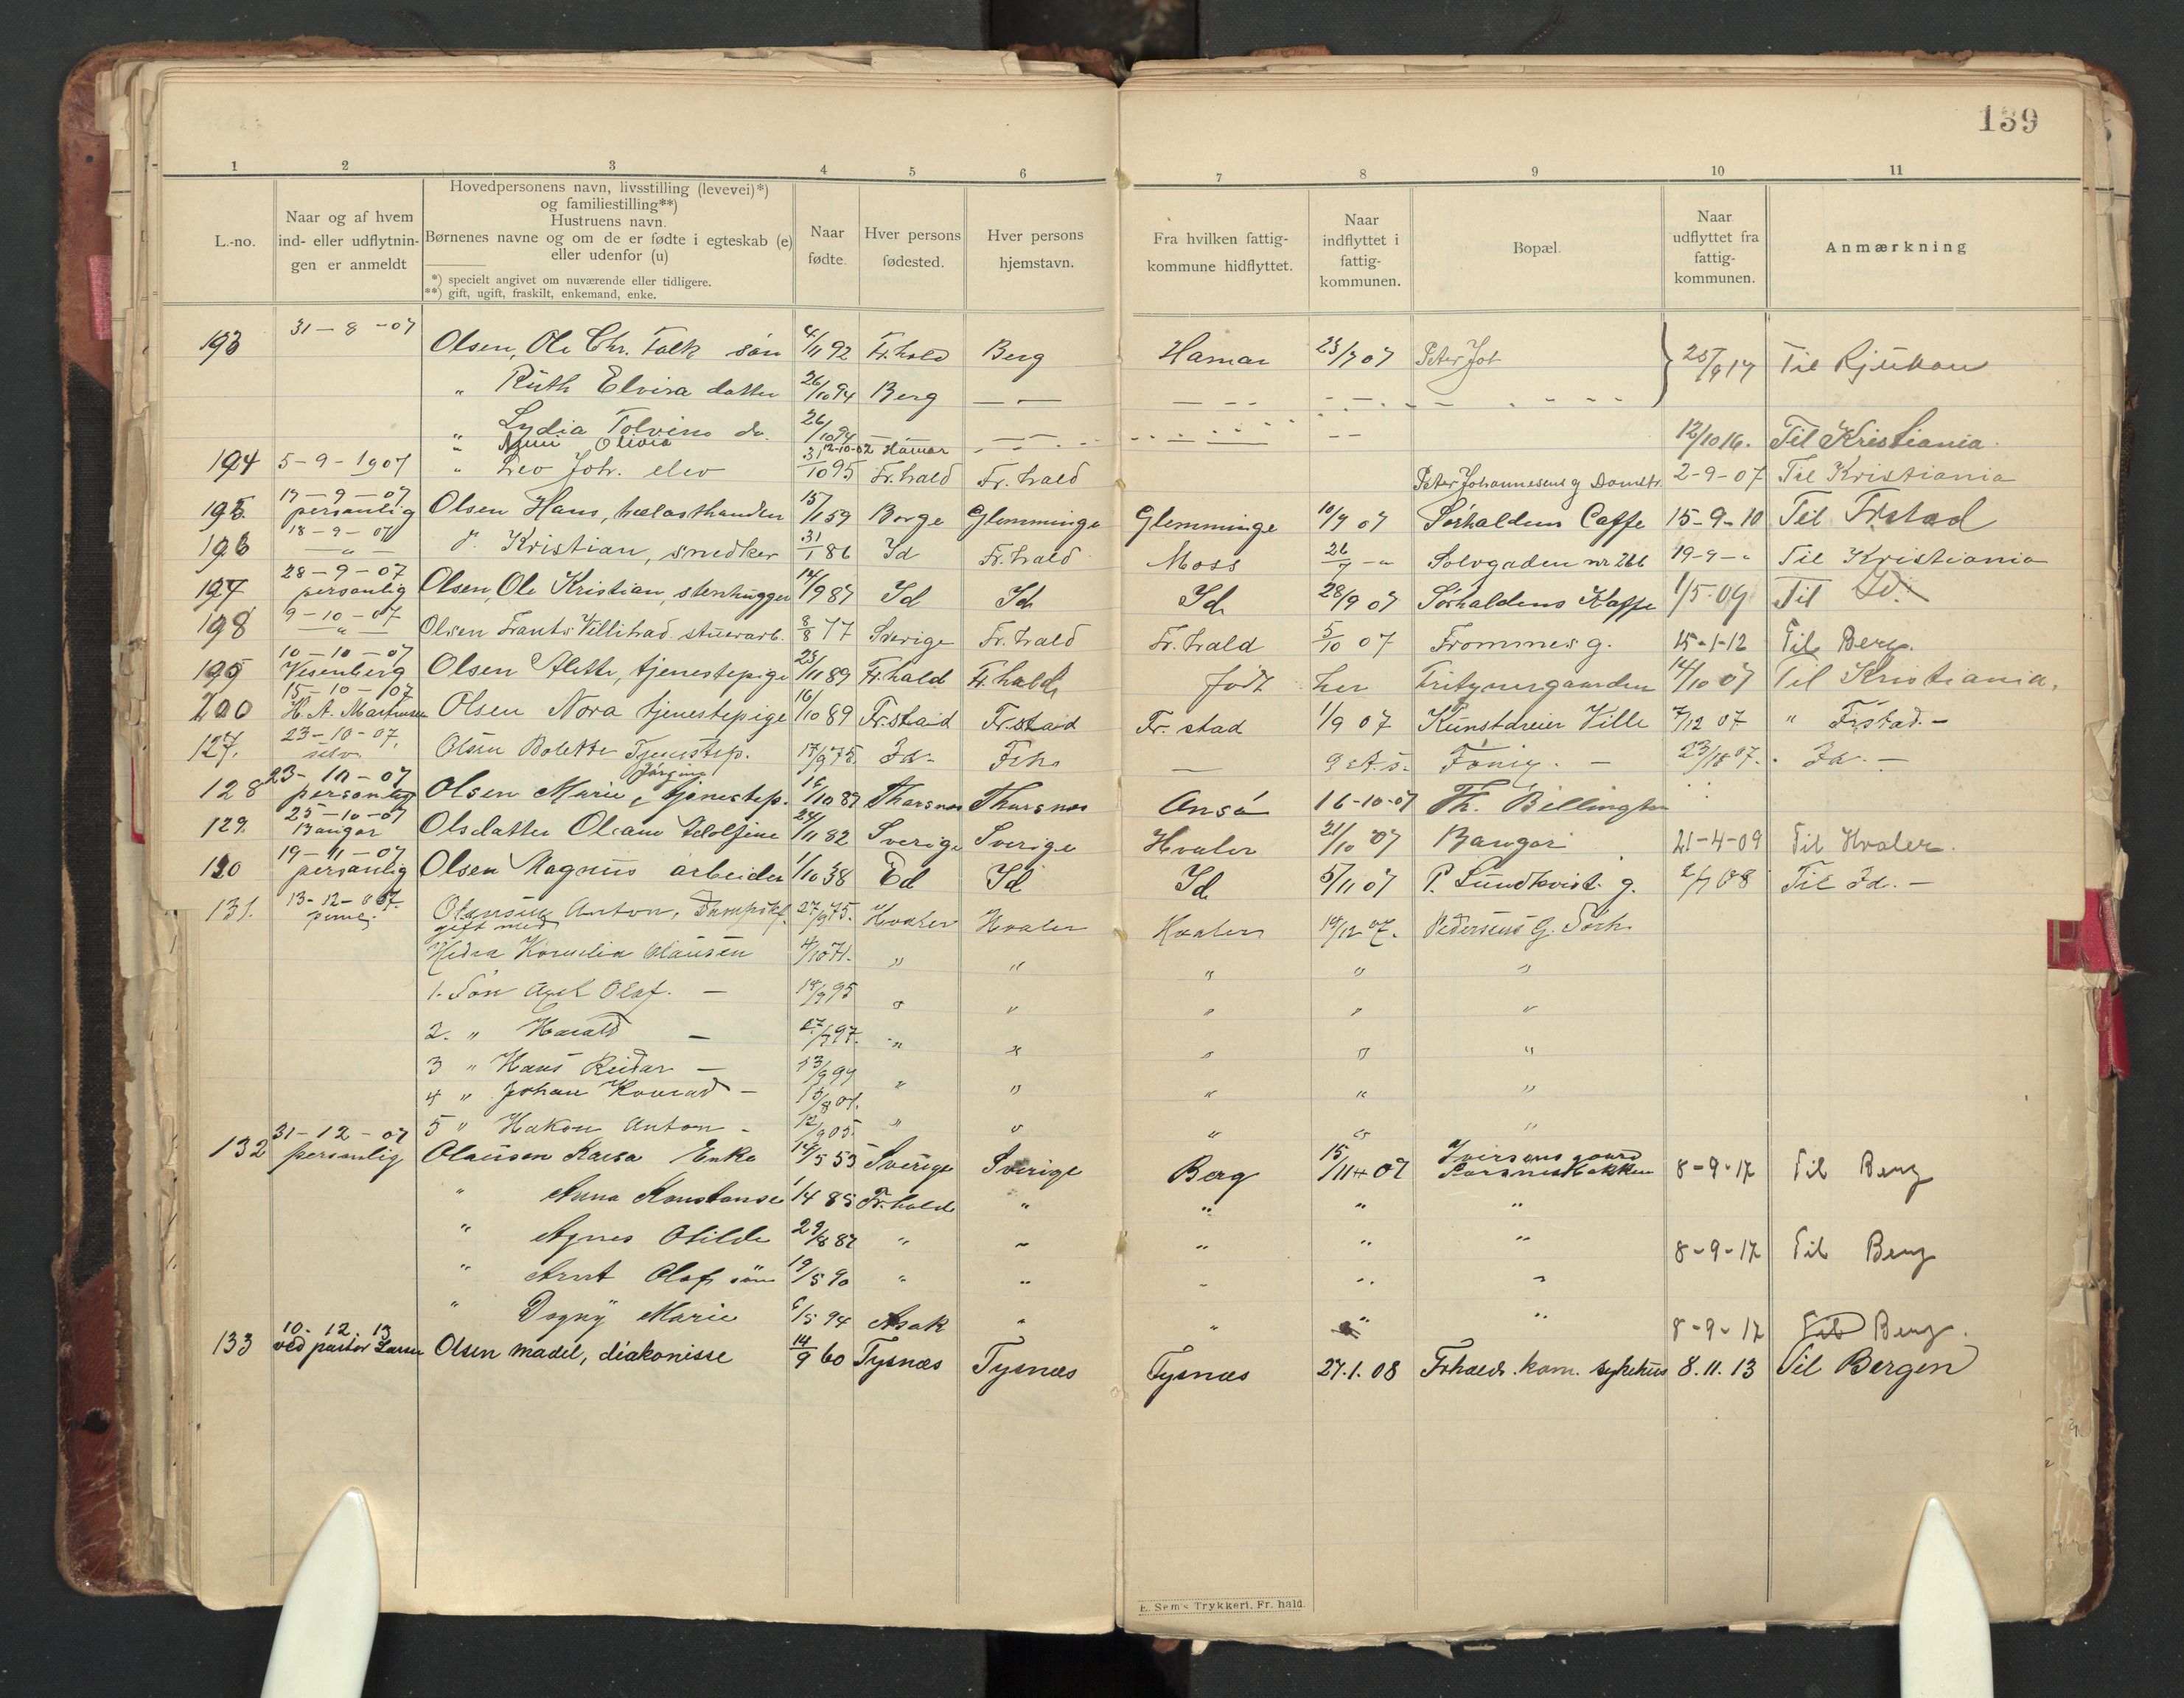 139
1 2 3 4 5 6 7 8 9 10 11
L.-no.
Naar og af hvem ind- eller udflytnin- gen er anmeldt
Hovedpersonens navn, livsstilling (levevei)*)
og familiestilling**)
Hustruens navn.
Børnenes navne og om de er fødte i egteskab (e)
eller udenfor (u)
*) specielt angivet om nuværende eller tidligere.
**) gift, ugift, fraskilt, enkemand, enke.
Naar fødte.
Hver persons fødested.
Hver persons hjemstavn.
Fra hvilken fattig- kommune hidflyttet.
Naar indflyttet i fattig- kommunen.
Bopæl.
Naar udflyttet fra fattig- kommunen.
Anmærkning
193 31-8-07 Olsen, Ole Chr. Falk søn 4/11 92 Fr.hald Berg Hamar 23/7 07 Peter Joh 25/9 17 Til Rjukan
" Ruth Elvira datter 26/10 94 Berg — —
" Lydia Tolvine do. 26/10 94 — — 12/10 16. Til Kristiania.
" Olivia 12-10-02 Hamar
194 5-9-1907 " Leo Joh. elev 31/10 95 Fr.hald Fr.hald Peter Johannesens g Domstr. 2-9-07 Til Kristiania
195. 17-9-07 personlig Olsen Hans, 15/11 59 Borge Glemminge Glemminge 10/9 07 Sørhaldens Caffe 15-9-10 Til Frstad
196 18-9-07 — " — Kristian, snedker 31/1 86 Id Fr.hald Moss 26/7 - " Solvgaden nr 266 19-9- " Til Kristiania
197 28-9-07 personlig Olsen, Ole Kristian, stenhugger 14/9 87 Id Id Id 28/9 07 Sørhaldens Kaffe 1/5-09 Til Id.
198 9-10-07 — " — Olsen Frants Villihad. stuerarb. 8/8 77 Sverige Fr.hald Fr.hald 5/10 07 Frommes g. 15-1-12 Til Berg.
199 10-10-07 Wesenberg Olsen Alette, tjenestepige 23/11 89 Fr.hald Fr.hald født her 14/10 07 Til Kristiania.
200 15-10-107 H. A. Martinsen Olsen Nora tjenestepige 16/10 89 Fr.stad Fr.stad Fr. stad 1/9 07 Ville 7/12 07 " Frstad.-
127. 23-10-07. selv Olsen Bolette Tjenestep. 17/9 75. Id- — 23/10 07. Id.-
128 23-10-07 personlig Olsen Marie, Jørgine tjenestep. 16/10 87 Thorsnes Thorsnes Onsø 16-10-07 Th. Billington
129. 25-10-07 Bangar Olsdatter Oleane Adolfine 24/11 82 Sverige Sverige Hvaler 21/10 07 Bangar 21-4-09 Til Hvaler.
130 19-11-07 personlig Olsen Magnus arbeider 1/10 38 Ed Id Id 5/11 07 P. Lundkvist. g. 2/7 08 Til Id.-
131. 13-12-07. Olausen Anton, 27/9 75. Hvaler Hvaler Hvaler 14/12 07. Pedersens G. Sørh.
gift med
Kornelia Olausen 4/10 71. " " " " "
1. Søn Axel Olaf. — 18/9 95 " " " " "
2. " Harald — 27/7 97. " " " " "
3 " Hans Reidar — 13/9 99 " " " " "
4 " Johan Konrad — 15/8 01. " " " " "
5 " Hakon Anton - 12/9 05. " " " " "
132 31-12-07 personlig Olausen Kaisa Enke 14/5 53 Sverige Sverige Berg 15/11 07 Iversens gaard Torsnesbakken 8-9-17 Til Berg
" Anna Konstanse 1/4 85 Fr.hald " " " "
" Agnes Otilde 29/8 87 " " " " " 8-9-17 Til Berg
" Arnt Olaf søn 19/5 90 " " " " "
" Dagny Marie 6/5 94 Asak " " " " 8-9-17 Til Berg.
133 10. 12. 13 ved pastor Olsen Madel, diakonisse 14/9 60 Tysnæs Tysnæs Tysnæs 27.1.08 Frhalds kom. sykehus 8.11.13 Til Bergen
E. Sem's Trykkeri, Fr. hald.